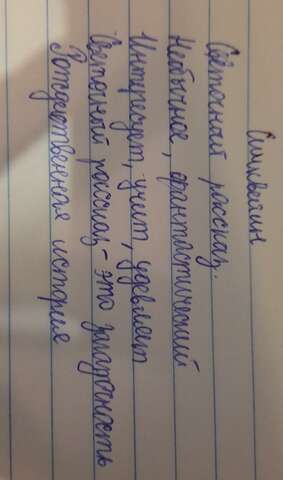 Синквейн
Святочный рассказ.
Необычное, фантастический
Интересует, учит, удивляет
Святочный рассказ - это загадочность
Рождественская история